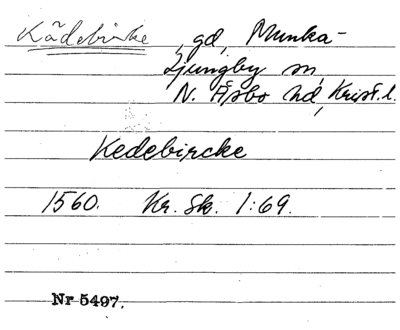 Kädebirke, gd, Munka-
Ljungby sn,
N. Åsbo hd, Krist. l.
Kedebircke
1560. Kr. Sk. 1:69.
Nr 5497.